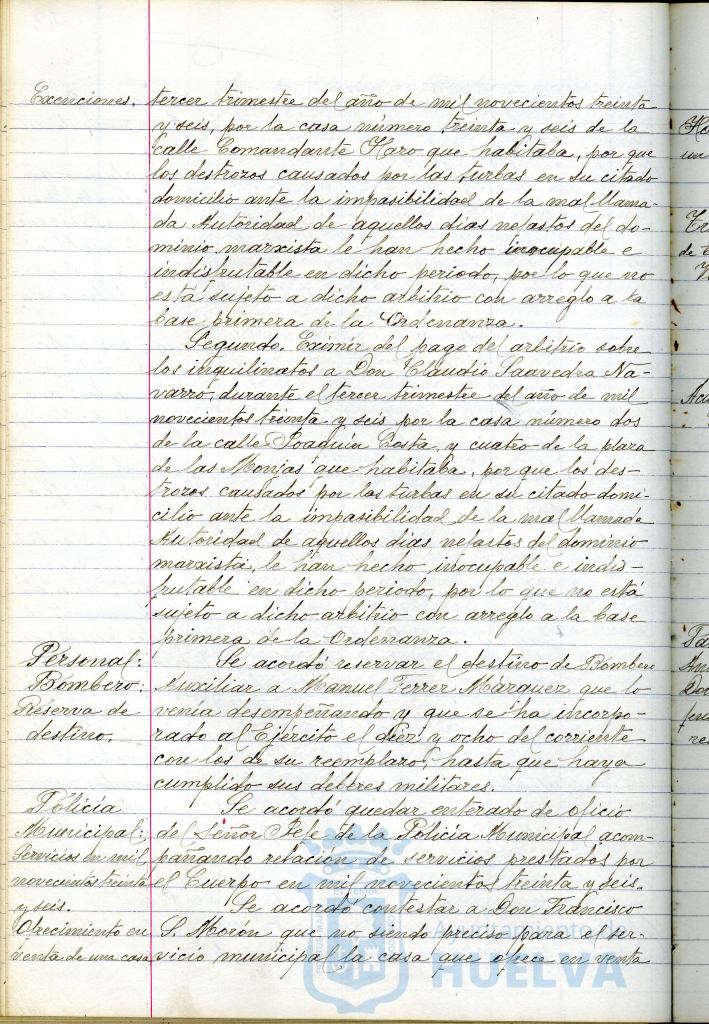 Exenciones. tercer trimestre del año de mil novecientos treinta
y seis, por la casa número treinta y seis de la
calle Comandante Haro que habitaba, por que
los destrozos causados por las turbas en su citado
domicilio ante la impasibilidad de la mal llama-
da Autoridad de aquellos dias nefastos del do-
minio marxista le han hecho inocupable e
indisfrutable en dicho periodo, por lo que no
está sujeto a dicho arbitrio con arreglo a la
base primera de la Ordenanza.
Segundo. Eximir del pago del arbitrio sobre
los inquilinatos a Don Claudio Saavedra Na-
varro, durante el tercer trimestre del año de mil
novecientos treinta y seis por la casa número dos
de la calle Joaquín Costa, y cuatro de la plaza
de las Monjas que habitaba, por que los des-
trozos causados por las turbas en su citado domi-
cilio ante la impasibilidad de la mal llamada
Autoridad de aquellos dias nefastos del dominio
marxista, le han hecho inocupable e indis-
frutable en dicho periodo, por lo que no está
sujeto a dicho arbitrio con arreglo a la base
primera de la Ordenanza.
Personal: Se acordó reservar el destino de Bombero
Bombero: Auxiliar a Manuel Ferrer Márquez que lo
Reserva de venia desempeñando y que se ha incorpo-
destino. rado al Ejército el diez y ocho del corriente
con los de su reemplazo, hasta que haya
cumplido sus deberes militares.
Policía Se acordó quedar enterado de oficio
Municipal: del Señor Jefe de la Policía Municipal acom-
Servicios en mil pañando relación de servicios prestados por
novecientos treinta el Cuerpo en mil novecientos treinta y seis.
y seis. Se acordó contestar a Don Francisco
Ofrecimiento en S. Morón que no siendo preciso para el ser-
venta de una casa vicio municipal la casa que ofrece en venta
Ayuntamiento de
HUELVA